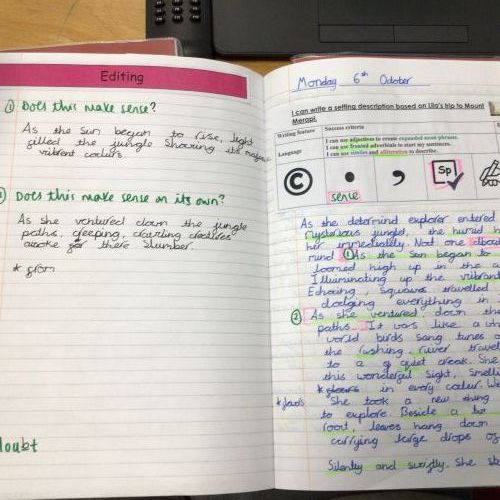 Editing
① Does this make sense?
As the sun began to rise, light
filled the jungle sharing its
vibrant colours.
Does this make sense on its own?
As she ventured down the jungle
paths, creeping, crawling creatures
awoke for there slumber.
* from
doubt
Monday 6th October
I can write a setting description based on Lila's trip to Mount
Merapi.
Writing feature Success criteria
Language
I can use adjectives to create expanded noun phrases.
I can use fronted adverbials to start my sentences.
I can use similes and alliteration to describe.
© • , Sp
sense
As the determind explorer entered
mysterious jungle, the humid
her immediately. Not one
mind ① As the sun began to
loomed high up in the
Illiuminating up the vibrant
Echoing, squaws travelled
dodging everything in
② As she ventured down the
paths. It was like a
world birds sang tunes
the rushing river
to a quiet creak. She
this wonderful sight,
in every colour.
She took a new thing
to explore. Beside a
root, leaves hang down
carrying large drops of
Silently and swiftly. She